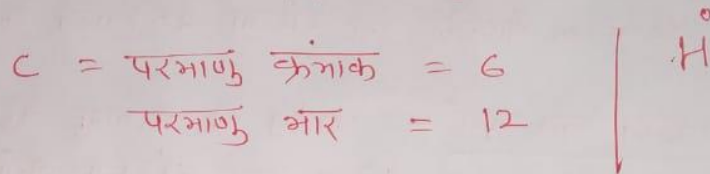 C = परमाणु क्रंमाक = 6
परमाणु भार = 12
H